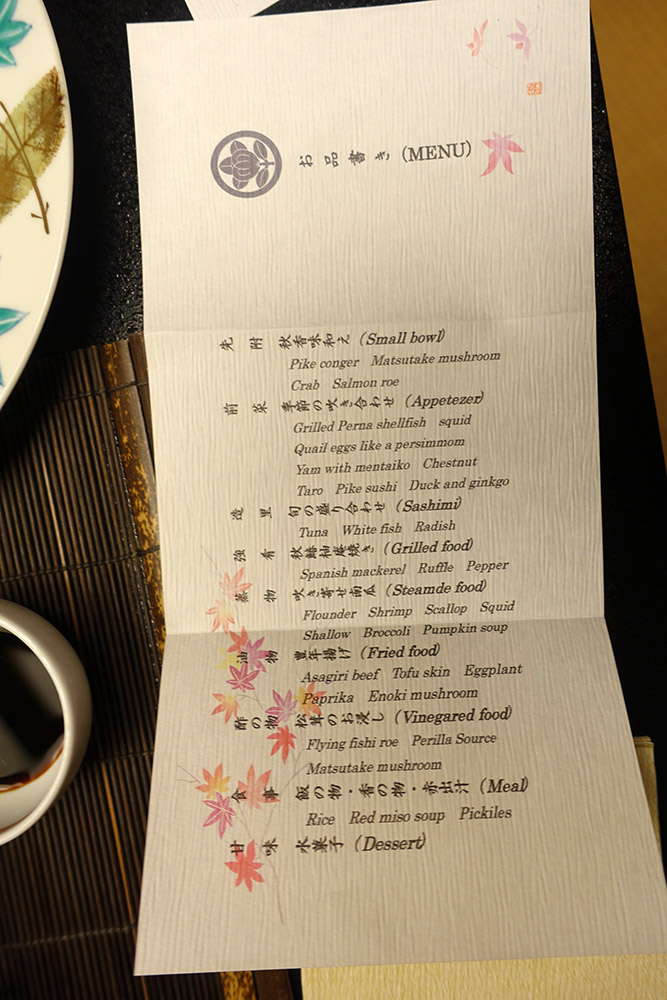 お品書き (MENU)
先附 秋香味和え (Small bowl)
Pike conger Matsutake mushroom
Crab Salmon roe
前菜 季節の吹き合わせ (Appetezer)
Grilled Perna shellfish squid
Quail eggs like a persimmom
Yam with mentaiko Chestnut
Taro Pike sushi Duck and ginkgo
造里 旬の盛り合わせ (Sashimi)
Tuna White fish Radish
強肴 秋鰆柚庵焼き (Grilled food)
Spanish mackerel Ruffle Pepper
蒸物 吹き寄せ南瓜 (Steamde food)
Flounder Shrimp Scallop Squid
Shallow Broccoli Pumpkin soup
油物 豊年揚げ (Fried food)
Asagiri beef Tofu skin Eggplant
Paprika Enoki mushroom
酢の物 松茸のお浸し (Vinegared food)
Flying fishi roe Perilla Source
Matsutake mushroom
食事 飯の物・香の物・赤出汁 (Meal)
Rice Red miso soup Pickiles
甘味 水菓子 (Dessert)